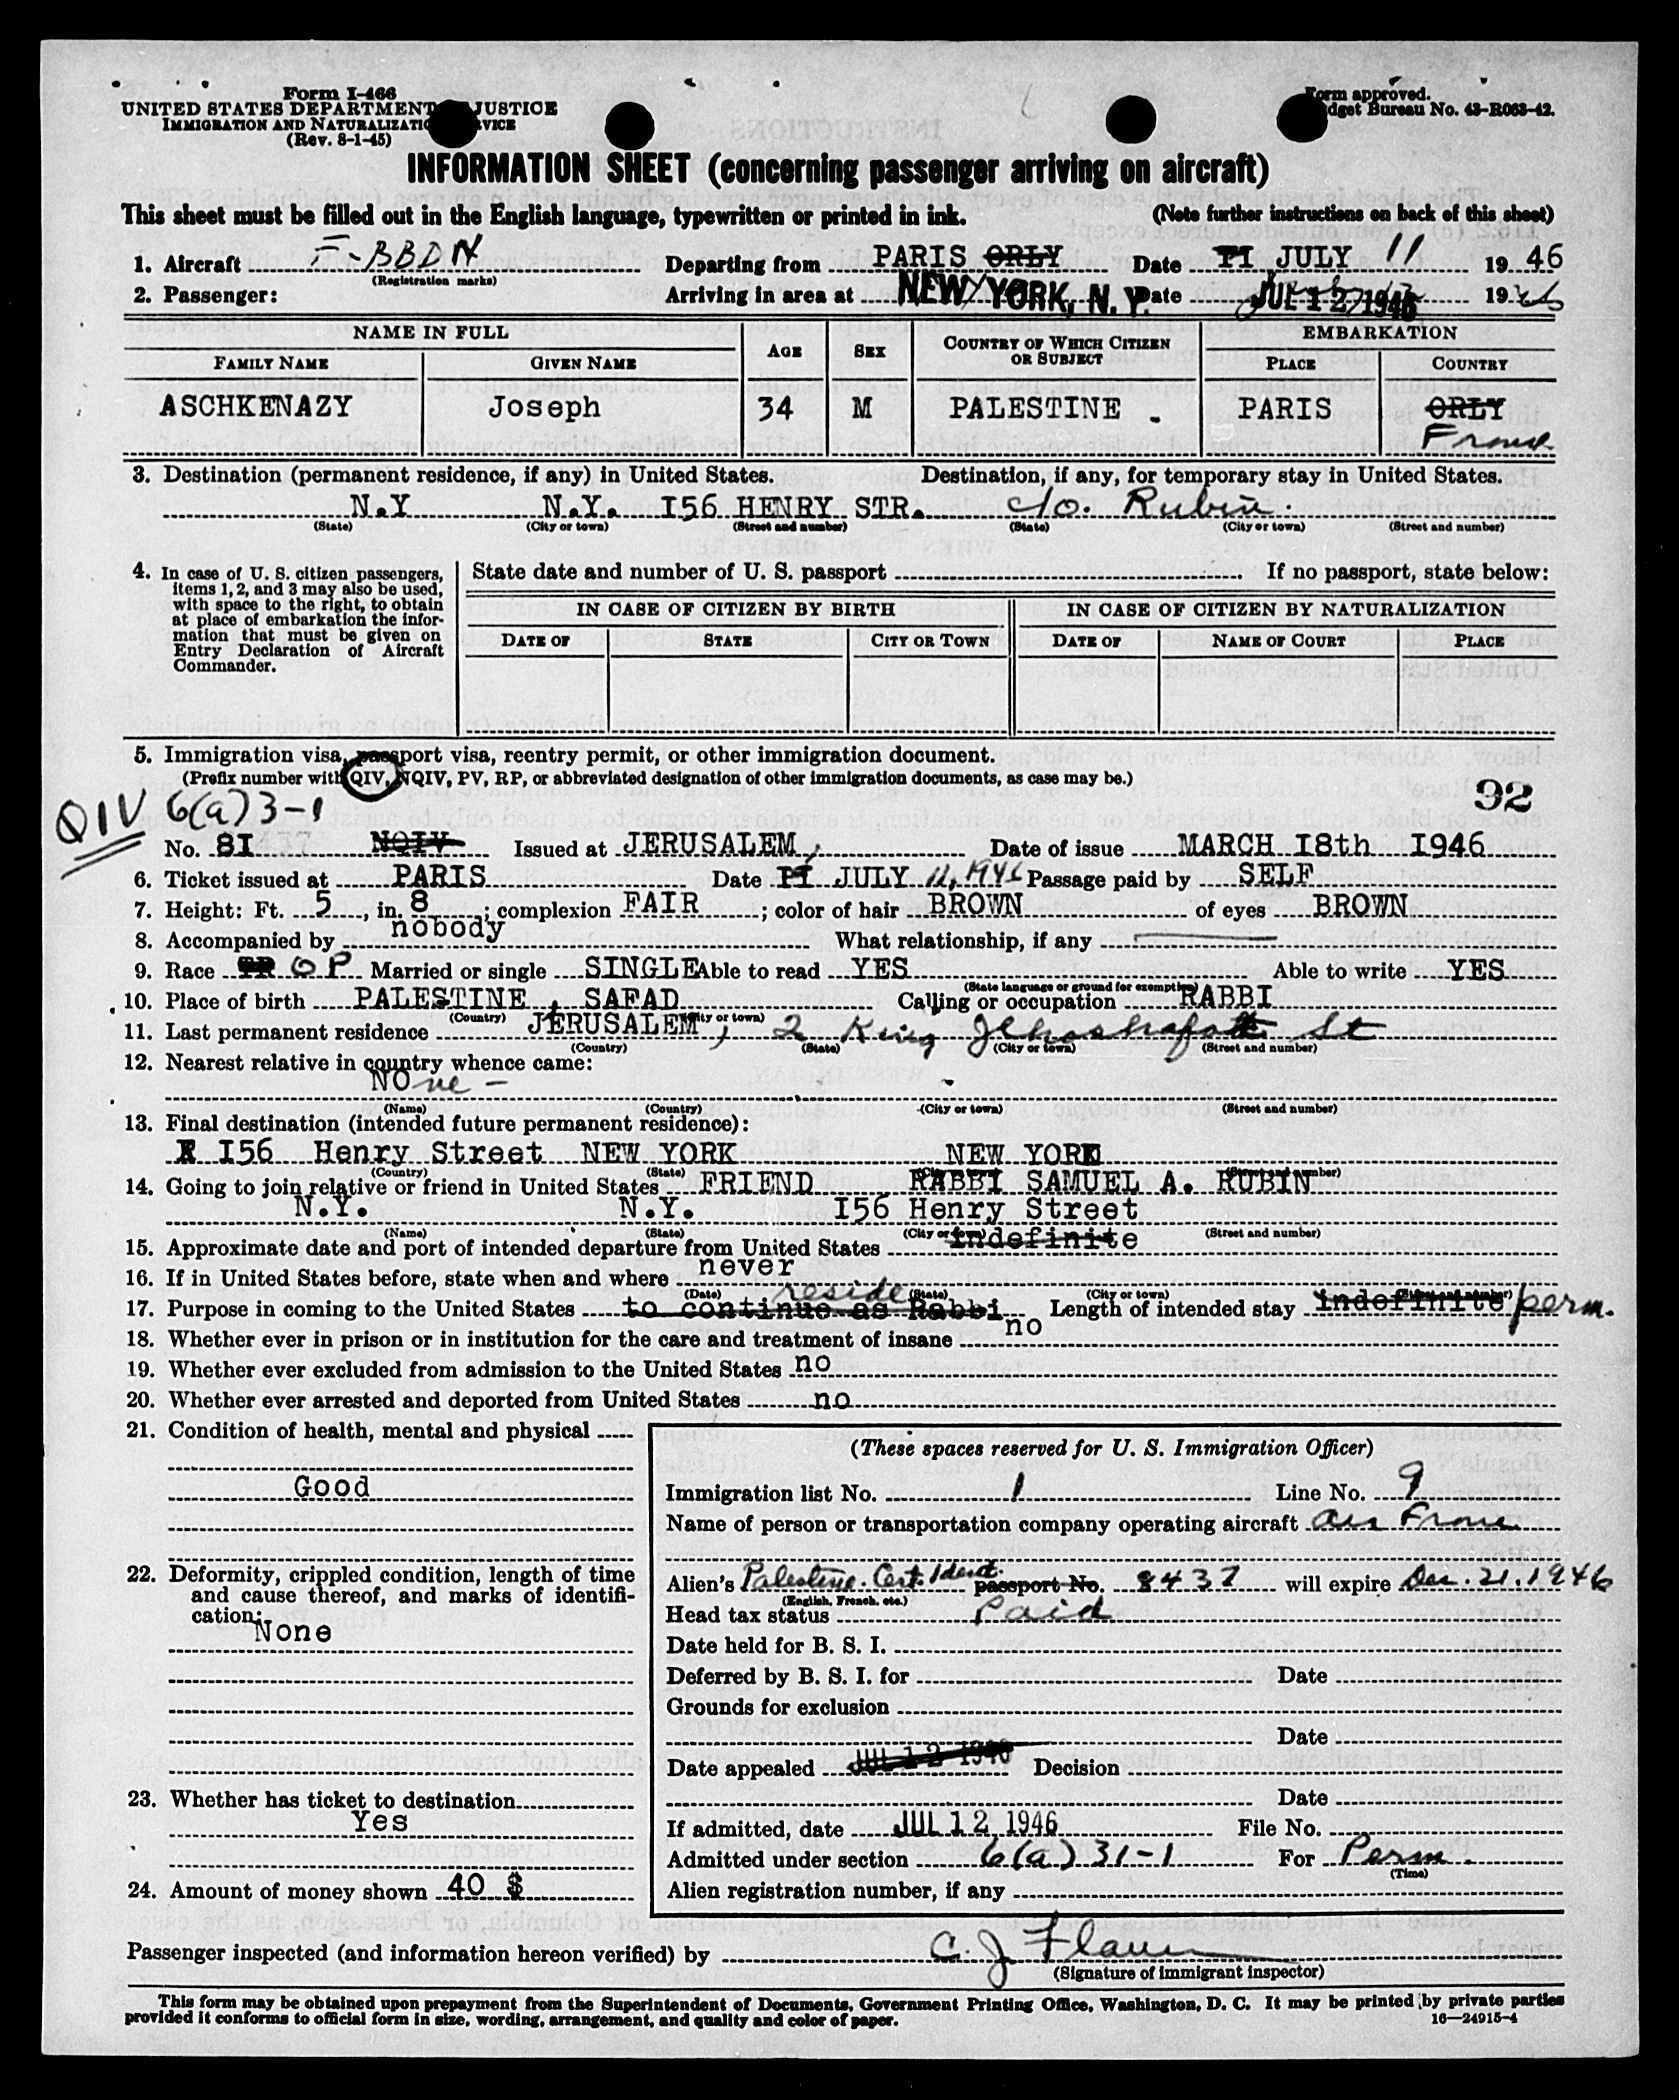 Form I-466
UNITED STATES DEPARTMENT JUSTICE
IMMIGRATION AND NATURALIZATI VICE
(Rev. 8-1-45)
Form approved.
dget Bureau No. 43-R063-42.
INFORMATION SHEET (concerning passenger arriving on aircraft)
This sheet must be filled out in the English language, typewritten or printed in ink. (Note further instructions on back of this sheet)
1. Aircraft F-BBDN Departing from PARIS ORLY Date II JULY 11 1946
(Registration marks)
2. Passenger: Arriving in area at NEW YORK, N. Y. Date JUL 12 1946 1946
NAME IN FULL AGE SEX COUNTRY OF WHICH CITIZEN OR SUBJECT EMBARKATION
FAMILY NAME GIVEN NAME PLACE COUNTRY
ASCHKENAZY Joseph 34 M PALESTINE . PARIS ORLY
France
3. Destination (permanent residence, if any) in United States. Destination, if any, for temporary stay in United States.
N.Y N.Y. I56 HENRY STR. c/o. Rubin.
(State) (City or town) (Street and number) (State) (City or town) (Street and number)
4. In case of U. S. citizen passengers, items 1, 2, and 3 may also be used, with space to the right, to obtain at place of embarkation the information that must be given on Entry Declaration of Aircraft Commander.
State date and number of U. S. passport . If no passport, state below:
IN CASE OF CITIZEN BY BIRTH IN CASE OF CITIZEN BY NATURALIZATION
DATE OF STATE CITY OR TOWN DATE OF NAME OF COURT PLACE
5. Immigration visa, passport visa, reentry permit, or other immigration document.
(Prefix number with QIV, NQIV, PV, RP, or abbreviated designation of other immigration documents, as case may be.)
92
QIV 6(a)3-1
No. 8I NQIV Issued at JERUSALEM, Date of issue MARCH I8th I946
6. Ticket issued at PARIS Date II JULY 11, 1946 Passage paid by SELF
7. Height: Ft. 5, in. 8; complexion FAIR; color of hair BROWN of eyes BROWN
8. Accompanied by nobody What relationship, if any
9. Race OP Married or single SINGLE Able to read YES Able to write YES
(State language or ground for exemption)
10. Place of birth PALESTINE , SAFAD Calling or occupation RABBI
(Country) (City or town)
11. Last permanent residence JERUSALEM, 2 King Jehoshafat St
(Country) (State) (City or town) (Street and number)
12. Nearest relative in country whence came:
NOne -
(Name) (Country) (City or town) (Street and number)
13. Final destination (intended future permanent residence):
I56 Henry Street NEW YORK NEW YORK
(Country) (State) (Street and number)
14. Going to join relative or friend in United States FRIEND RABBI SAMUEL A. RUBIN
N.Y. N.Y. I56 Henry Street
(Name) (State) (City or town) (Street and number)
15. Approximate date and port of intended departure from United States indefinite
16. If in United States before, state when and where never
(Date) (State) (City or town) (Street and number)
reside
17. Purpose in coming to the United States to continue as Rabbi Length of intended stay indefinite perm.
18. Whether ever in prison or in institution for the care and treatment of insane no
19. Whether ever excluded from admission to the United States no
20. Whether ever arrested and deported from United States no
21. Condition of health, mental and physical
Good
22. Deformity, crippled condition, length of time and cause thereof, and marks of identification:
None
23. Whether has ticket to destination
Yes
24. Amount of money shown 40 $
(These spaces reserved for U. S. Immigration Officer)
Immigration list No. 1 Line No. 9
Name of person or transportation company operating aircraft Air France
Alien's Palestine. Cert. Ident. passport No. 8437 will expire Dec. 21. 1946
(English, French, etc.)
Head tax status Paid
Date held for B. S. I.
Deferred by B. S. I. for Date
Grounds for exclusion
Date
Date appealed JUL 12 1946 Decision
Date
If admitted, date JUL 12 1946 File No.
Admitted under section 6(a)31-1 For Perm.
(Time)
Alien registration number, if any
Passenger inspected (and information hereon verified) by C. J.
(Signature of immigrant inspector)
This form may be obtained upon prepayment from the Superintendent of Documents, Government Printing Office, Washington, D. C. It may be printed by private parties
provided it conforms to official form in size, wording, arrangement, and quality and color of paper.
16—24915-4